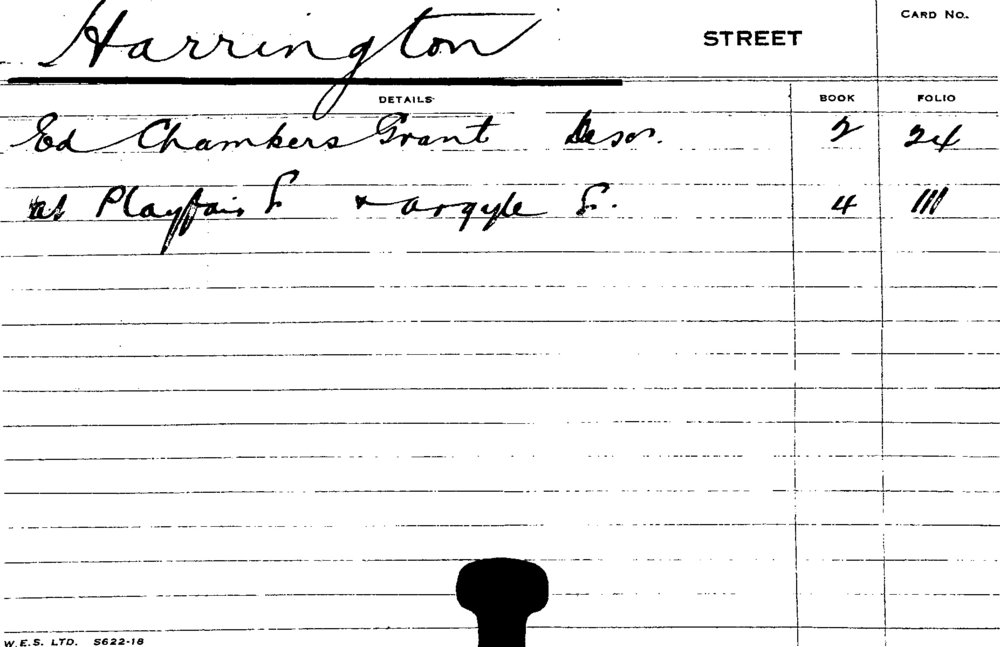 Harrington STREET CARD NO.
DETAILS BOOK FOLIO
Ed Chambers Grant Desc. 2 24
at Playfair St & Argyle St. 4 111
W.E.S. LTD. S622-18